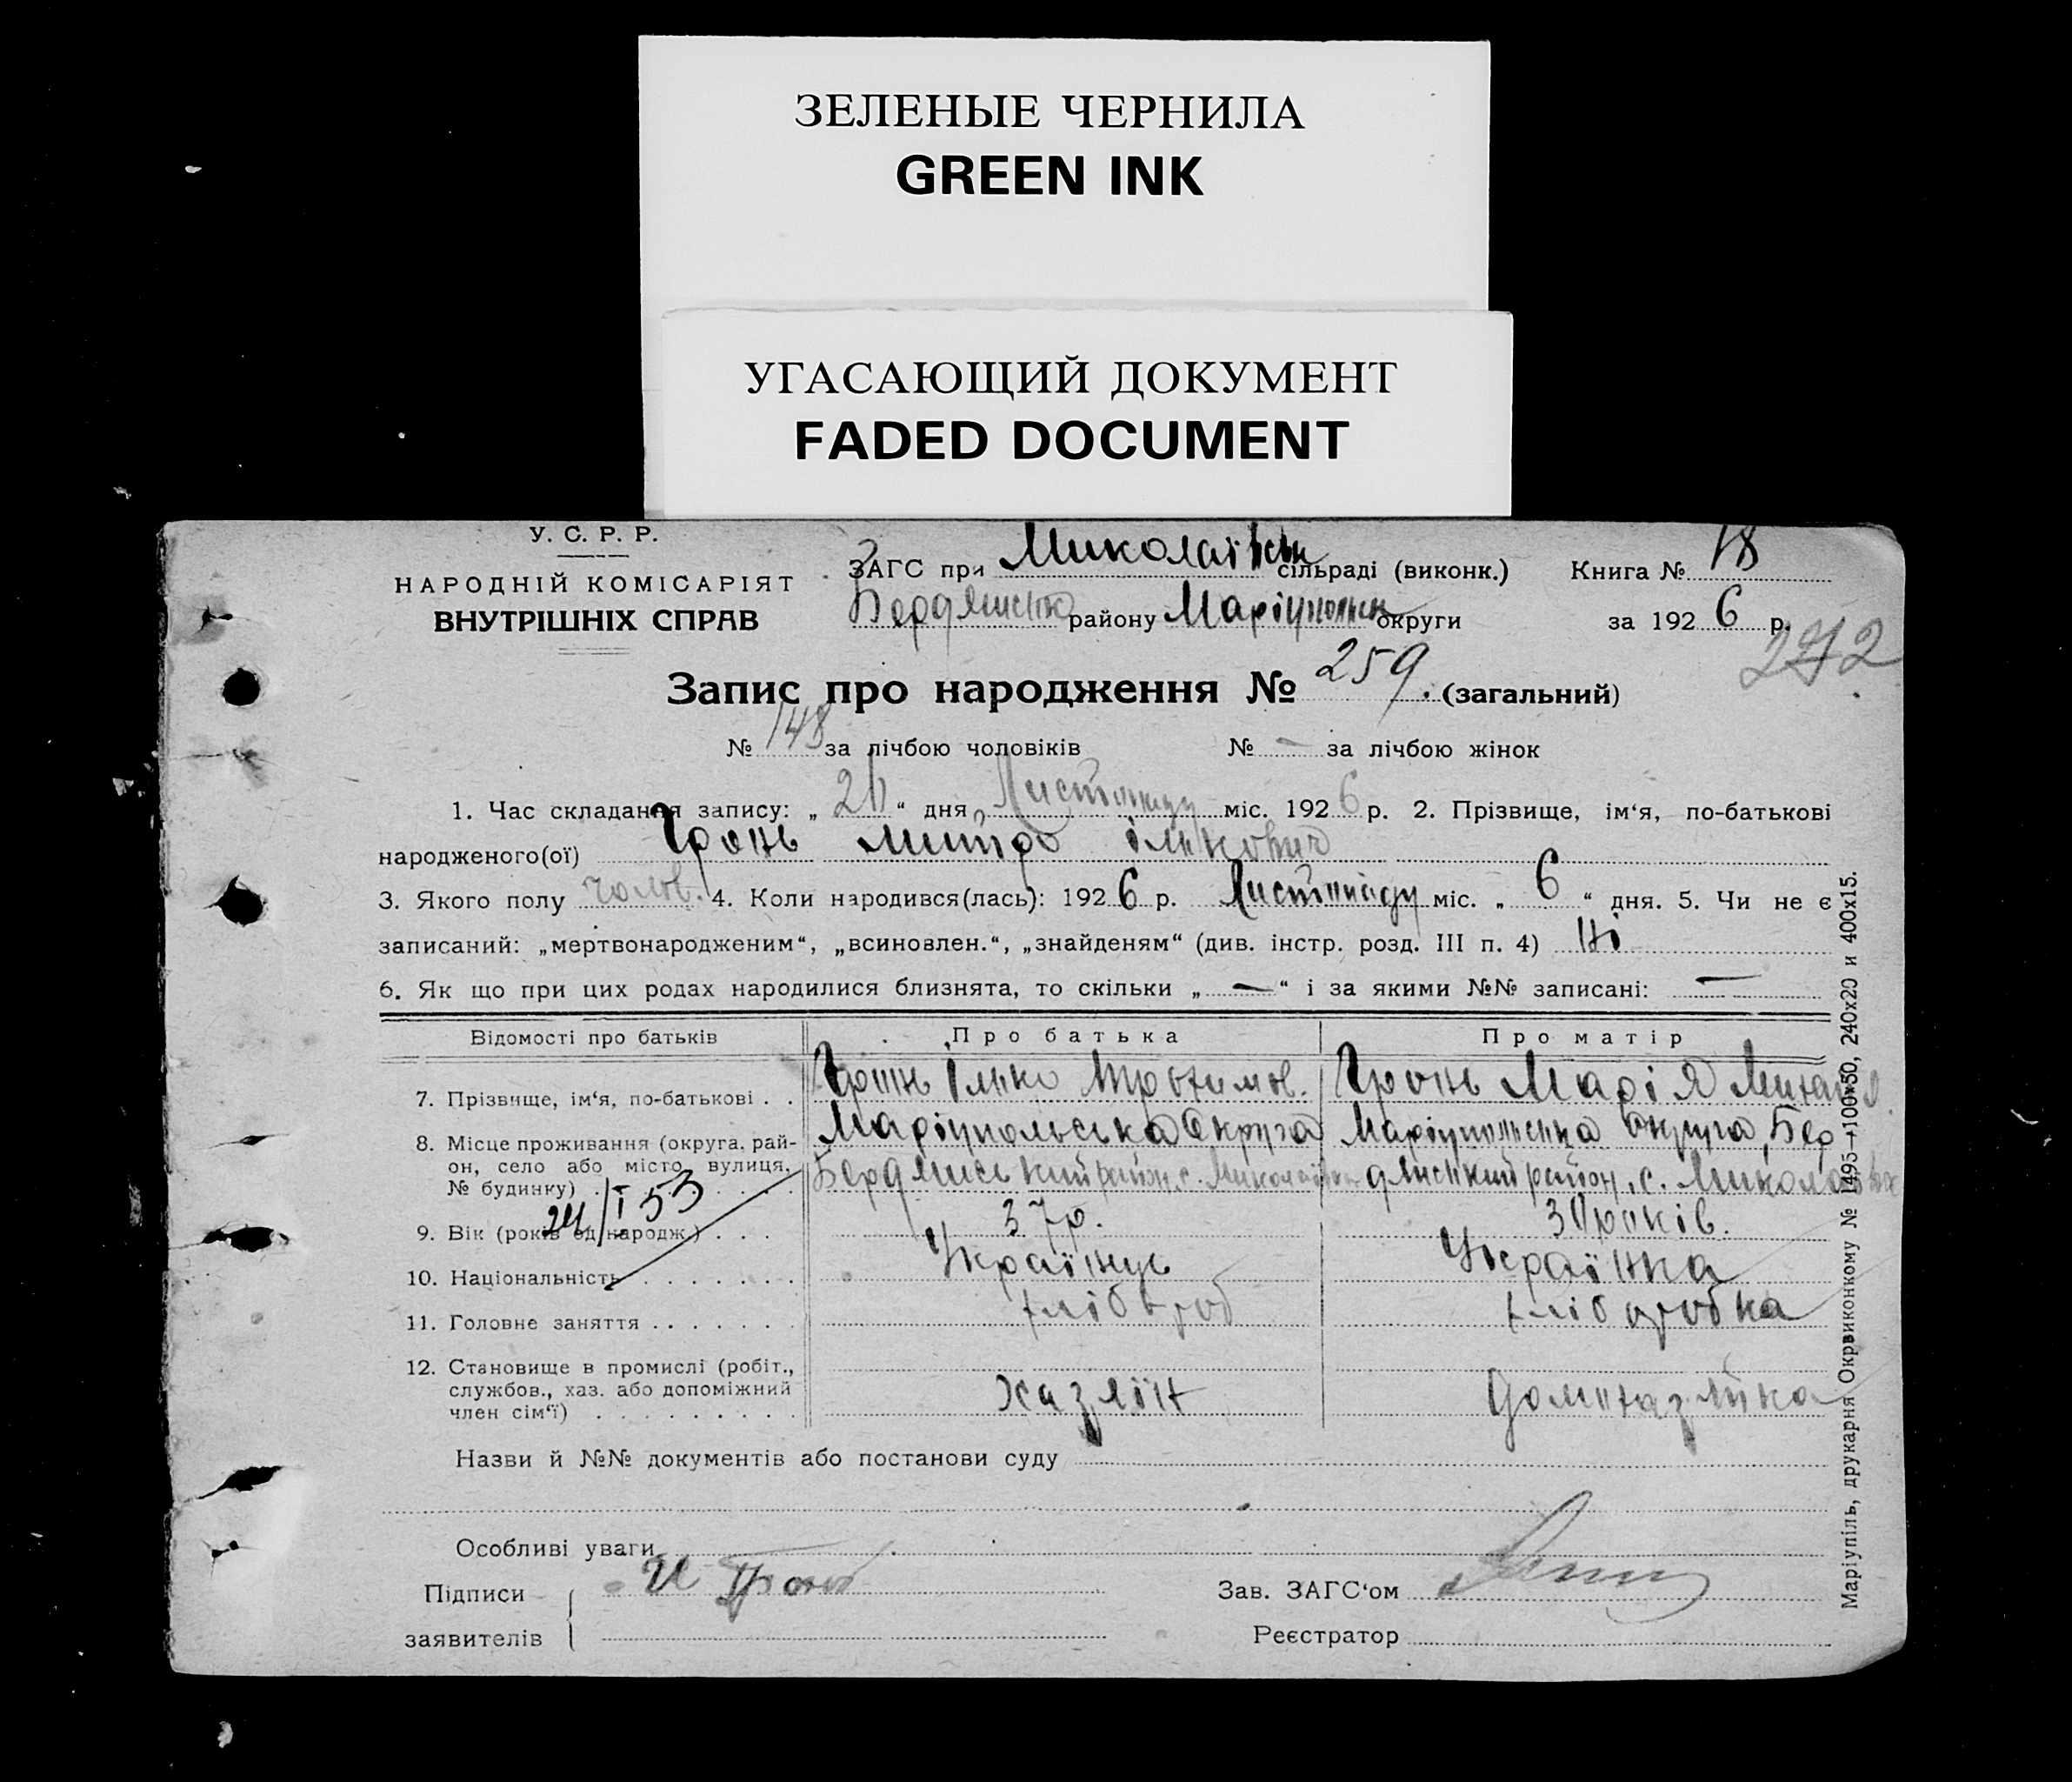 ЗЕЛЕНЫЕ ЧЕРНИЛА
GREEN INK
УГАСАЮЩИЙ ДОКУМЕНТ
FADED DOCUMENT
У. С. Р. Р.
НАРОДНІЙ КОМІСАРІЯТ
ВНУТРІШНІХ СПРАВ
ЗАГС при Миколаївськ сільраді (виконк.) Книга № 18
Бердянськ району Маріупольськ округи за 1926 р.
272
Запис про народження № 259. (загальний)
№ 148 за лічбою чоловіків № — за лічбою жінок
1. Час складання запису: „ “ дня Листопаду міс. 1926 р. 2. Прізвище, ім‘я, по-батькові
народженого(ої) Гронь Митро Ількович
3. Якого полу чолов. 4. Коли народився(лась): 1926 р. Листопаду міс. „ 6 “ дня. 5. Чи не є
записаний: „мертвонародженим“, „всиновлен.“, „знайденям“ (див. інстр. розд. III п. 4) Ні
6. Як що при цих родах народилися близнята, то скільки „ — “ і за якими №№ записані: —
Відомості про батьків Про батька Про матір
7. Прізвище, ім‘я, по-батькові . . Гронь Ілько Трохимов. Гронь Марія
8. Місце проживання (округа, рай-
он, село або місто, вулиця,
№ будинку) . . . Маріупольська Округа Бердянський район, с. Миколаївка Маріупольська Округа, Бердянський район, с. Миколаївка
24/I 53
9. Вік (років од народж.) . . . 37р. 30 років.
10. Національність . . . . . . . . Українець Українка
11. Головне заняття . . . . . . . хлібороб хліборобка
12. Становище в промислі (робіт.,
службов., хаз. або допоміжний
член сім‘ї) . . . . . . . . . Хазяїн Домохазяйка
Назви й №№ документів або постанови суду
Особливі уваги
Підписи И Гронь Зав. ЗАГС‘ом
заявителів Реєстратор
Маріупіль, друкарня Окрвиконкому № 1495—100×50, 240х20 и 400х15.